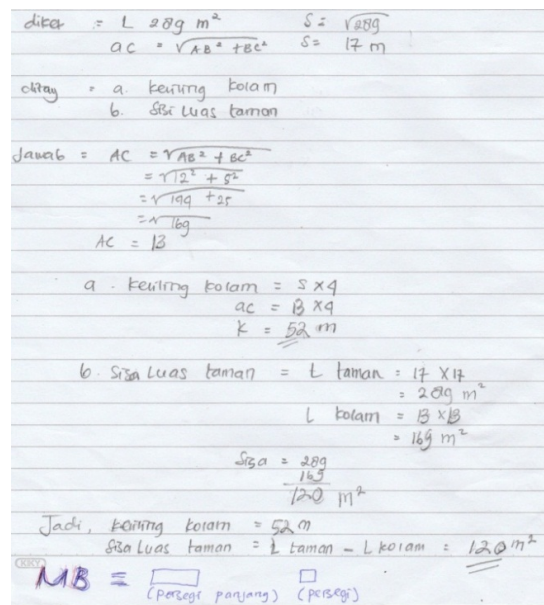 diket = L 289 m² S = √289
ac = √AB² + BC² S = 17 m
ditay = a. keliling kolam
b. Sisi Luas taman
Jawab = AC = √AB² + BC²
= √12² + 5²
= √144 + 25
= √169
AC = 13
a. keliling kolam = S × 4
ac = 13 × 4
K = 52 m
b. Sisa Luas taman = L taman = 17 × 17
= 289 m²
L kolam = 13 × 13
= 169 m²
Sisa = 289
169
120 m²
Jadi, keliling kolam = 52 m
Sisa Luas taman = L taman - L kolam = 120 m²
KKY
MB =
(persegi panjang) (persegi)